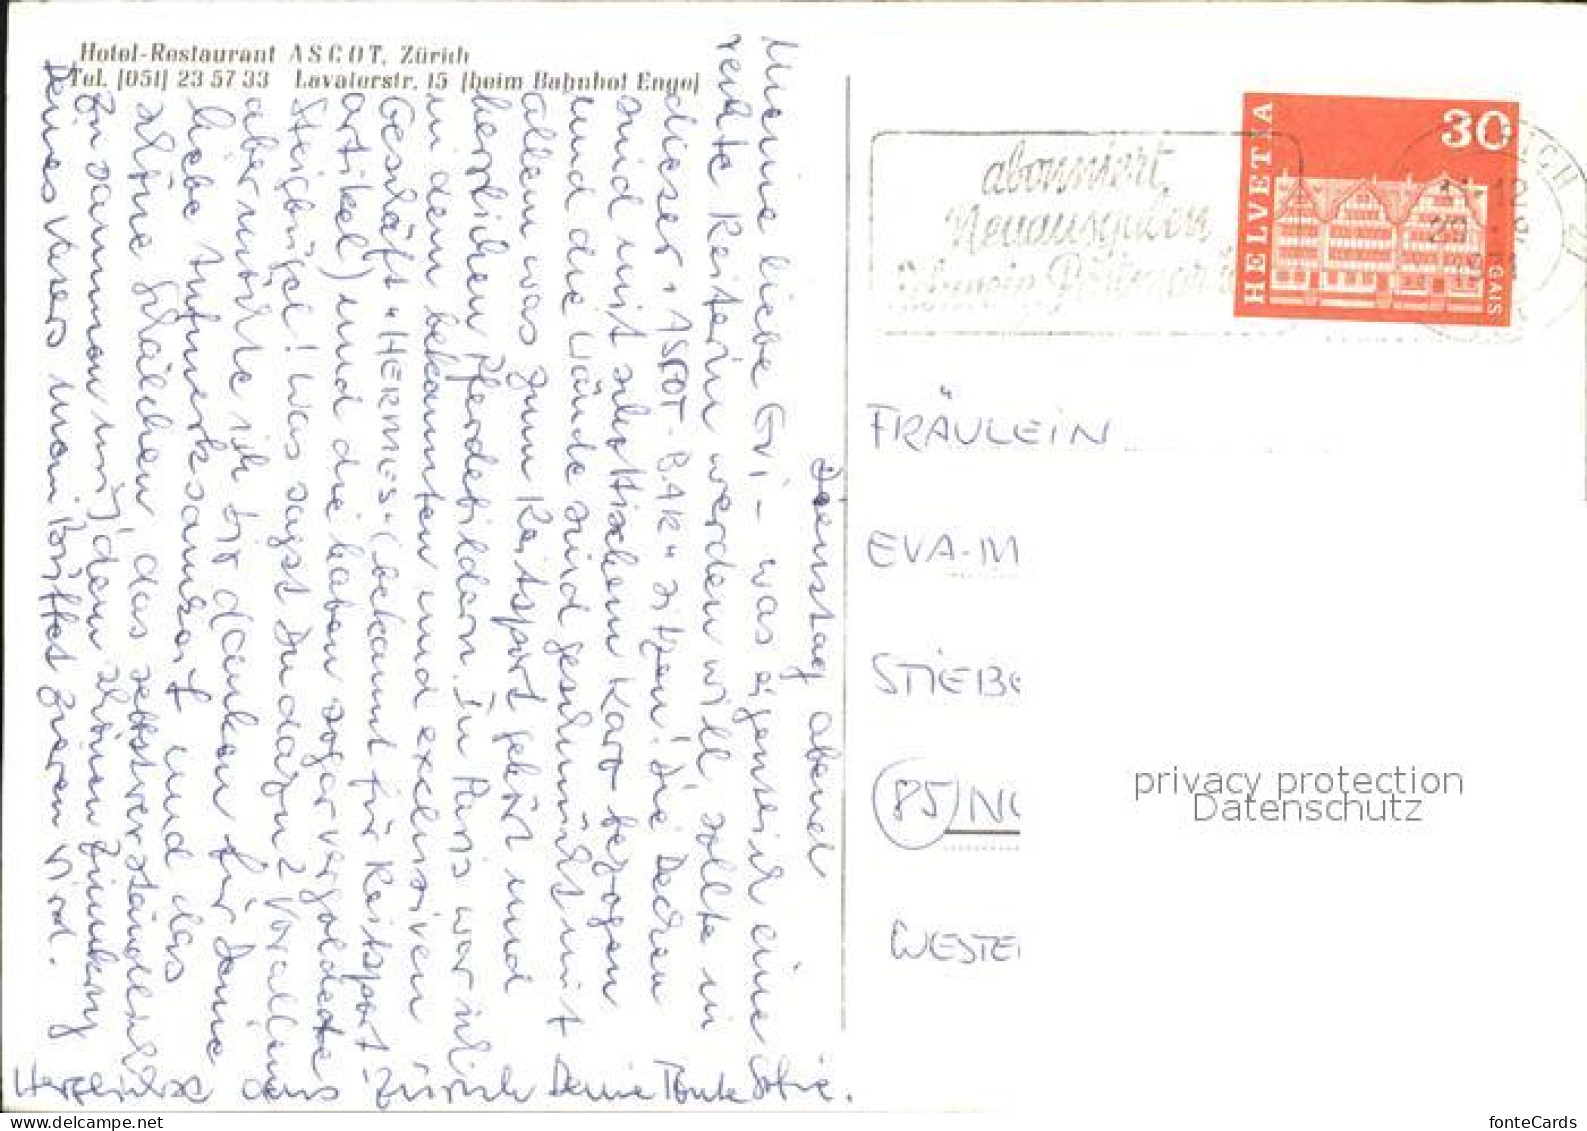 Hotel-Restaurant ASCOT, Zürich
Tel. (051) 23 57 33 Lavaterstr. 15 (beim Bahnhof Enge)
Dienstag abend
Meine liebe Evi - was eigentlich eine
rechte Reiterin werden will, sollte in
dieser "ASCOT-BAR" sitzen! Die Decken
sind mit schottischem Karo bezogen
und die Wände sind geschmückt mit
allem was zum Reitsport gehört und
herrlichen Pferdebildern. In Paris war ich
in dem bekannten und exclusiven
Geschäft "HERMES" (bekannt für Reitsport-
artikel) und die haben sogar vergoldete
Steigbügel! Was sagst Du dazu? Vor allem
aber möchte ich Dir danken für Deine
liebe Aufmerksamkeit und das
schöne Schälchen, das selbstverständlich
zusammen mit dem schönen Zinnkrug
Deines Vaters mein Büffet zieren wird.
Herzlichst aus Zürich Deine Tante Sofie.
abonniert
Neuausgaben
HELVETIA
30
GAIS
FRÄULEIN
EVA-M
STIEBE
(85) NÜ
WESTE
privacy protection
Datenschutz
fonteCards